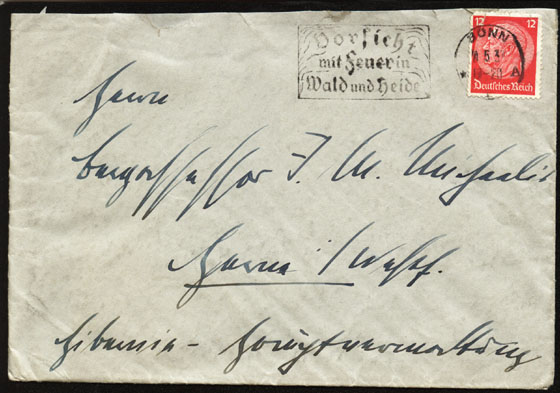 Vorsicht
mit Feuer in
Wald und Heide
12 12
BONN
A
Deutsches Reich
Herrn
Bergassessor J. W. Michaelis
Herne i/Westf.
Hibernia - Hauptverwaltung